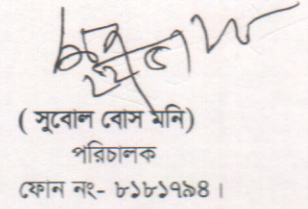 ( সুবোল বোস মনি)
পরিচালক
ফোন নং- ৮১৮১৭৯৪।